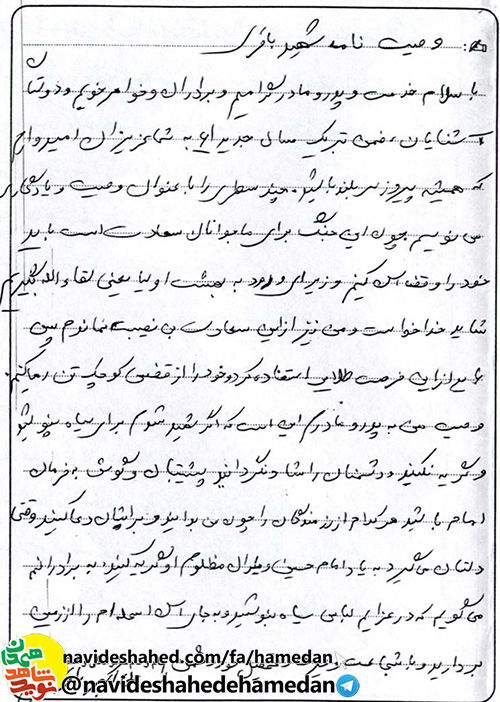 وصیت نامه شهید باقری
با سلام خدمت پدر و مادر گرامیم و برادران و خواهر خوبم و دوستان
آشنایان، ضمن تبریک سال جدید به شما عزیزان امیدوارم
که همیشه پیروز سربلند باشید. چند سطری را با عنوان وصیت و یادگاری
می نویسم چون این جنگ برای ما جوانان سعادت است باید
خود را وقف اسلام کنیم و زیرا ورود به بهشت اولیا یعنی لقاءالله بگیریم
شاید خدا خواست و من نیز از این سعادت بی نصیب نماندم پس
باید از این فرصت طلایی استفاده کرد و خود را از قفس کوچک تن رها کنم
وصیت من به پدر و مادرم این است که اگر شهید شوم برای سیاه نپوشید
و گریه نکنید و دشمنان را شاد نگردانید پشتیبان و گوش به فرمان
امام باشید هر کدام از رزمندگان را چون من بدانید و برایشان دعا کنید وقتی
دلتان می گیرد به یاد امام حسین و یاران مظلوم او گریه کنید، به برادرانم
می گویم که در عزایم لباس سیاه نپوشید و به جای اسلحه ام را از زمین
بردارید و با شجاعت
navideshahed.com/fa/hamedan
@navideshahedehamedan
نوید شاهد همدان